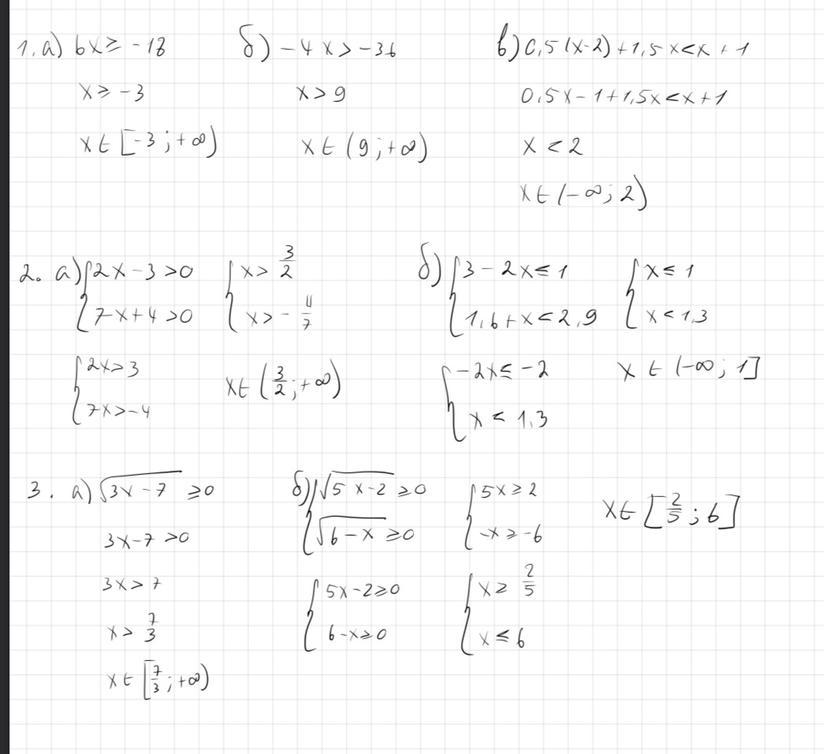 1. а) 6x ≥ -18
x ≥ -3
x ∈ [-3 ; +∞)
б) -4x > -36
x > 9
x ∈ (9 ; +∞)
в) 0,5(x-2) + 1,5x < x + 1
0,5x - 1 + 1,5x < x + 1
x < 2
x ∈ (-∞ ; 2)
2. а) { 2x - 3 > 0
7x + 4 > 0
{ 2x > 3
7x > -4
{ x > 3/2
x > - 4/7
x ∈ (3/2 ; +∞)
б) { 3 - 2x ≤ 1
1,6 + x < 2,9
{ -2x ≤ -2
x < 1,3
{ x ≤ 1
x < 1,3
x ∈ (-∞ ; 1]
3. а) √(3x - 7) ≥ 0
3x - 7 > 0
3x > 7
x > 7/3
x ∈ [7/3 ; +∞)
б) { √(5x - 2) ≥ 0
√(6 - x) ≥ 0
{ 5x - 2 ≥ 0
6 - x ≥ 0
{ 5x ≥ 2
-x ≥ -6
{ x ≥ 2/5
x ≤ 6
x ∈ [2/5 ; 6]